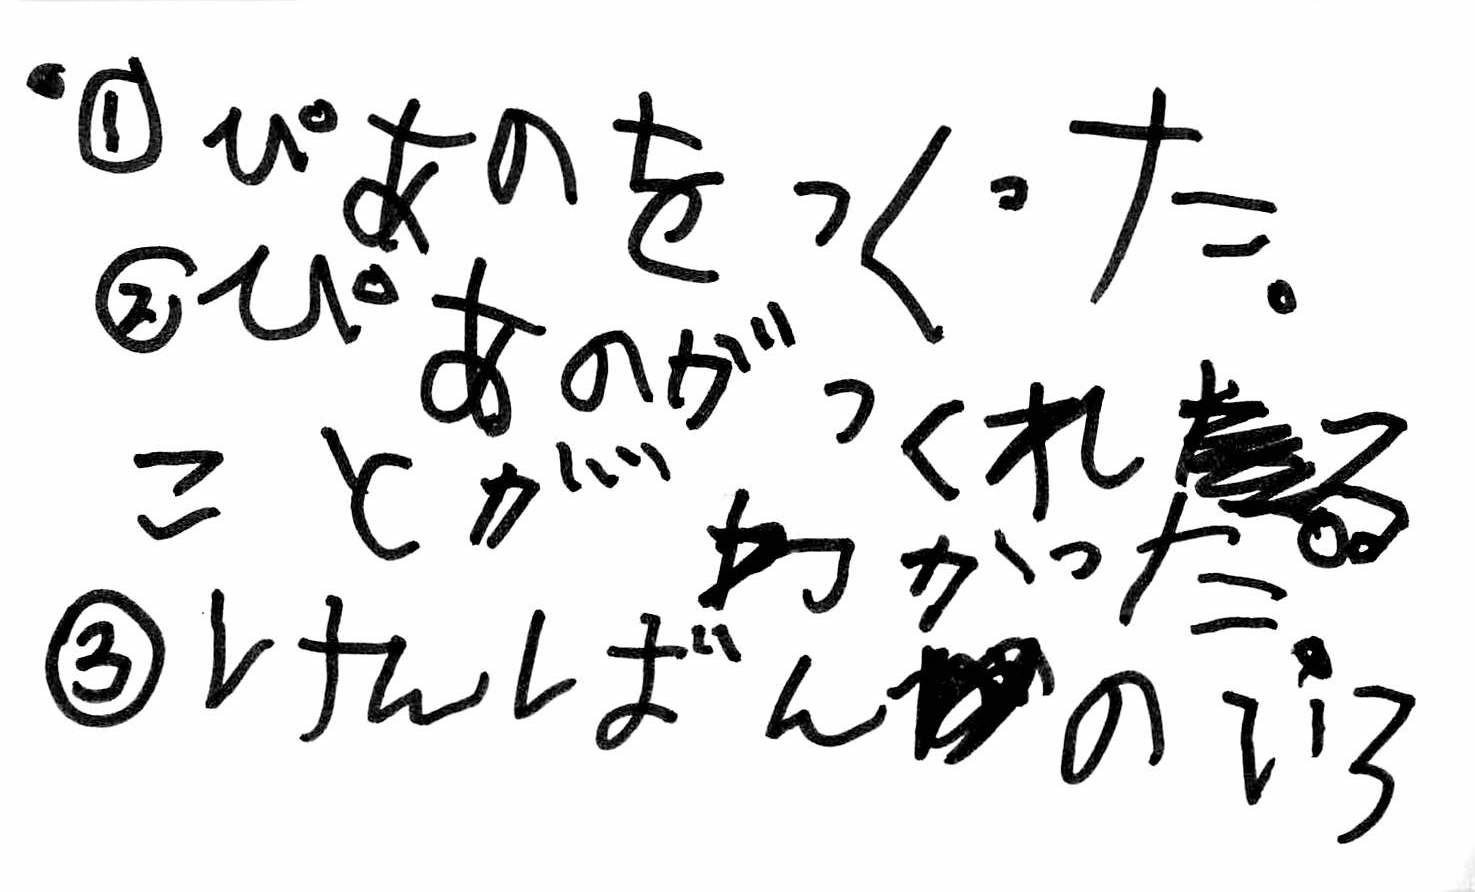 ・①ぴあのをつくった。
②ぴあのがつくれる
ことがわかった。
③けんばんのいろ